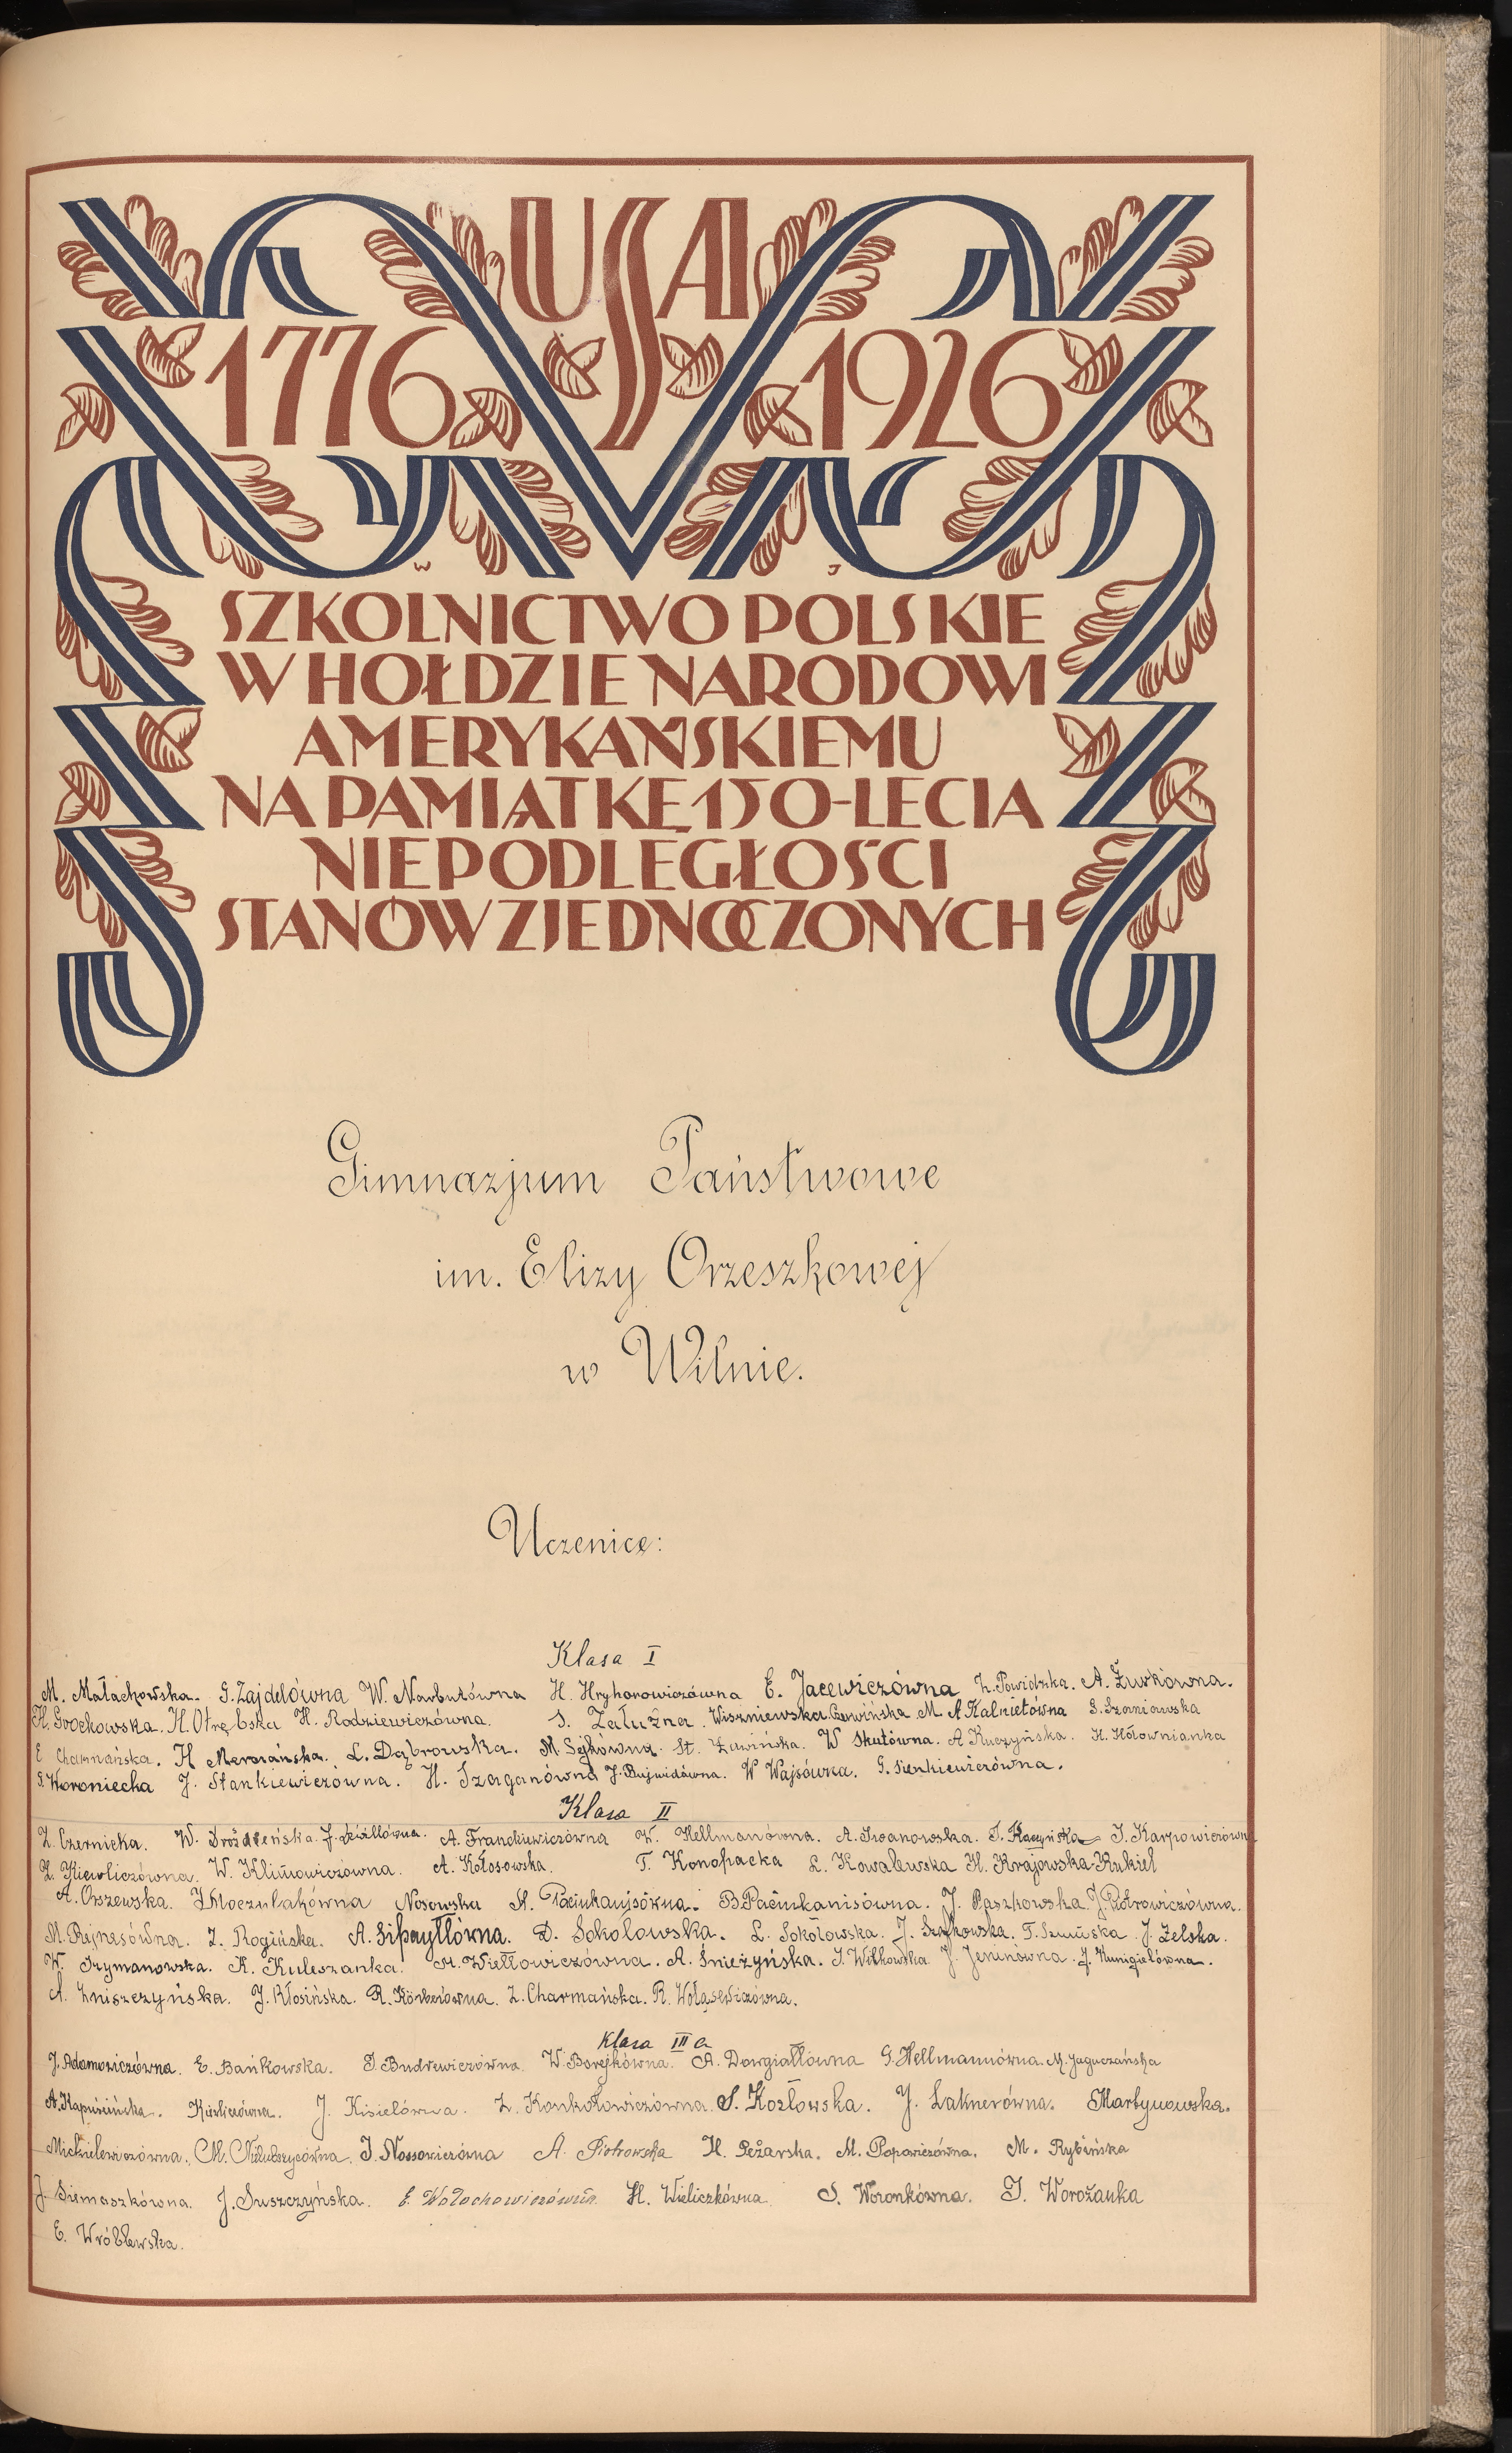 USA
1776 1926
SZKOLNICTWO POLSKIE
W HOŁDZIE NARODOWI
AMERYKAŃSKIEMU
NA PAMIĄTKĘ 150-LECIA
NIEPODLEGŁOŚCI
STANÓW ZJEDNOCZONYCH
Gimnazjum Państwowe
im. Elizy Orzeszkowej
w Wilnie.
Uczenice:
Klasa I
M. Małachowska. G. Zajdelówna W. Narbutówna H. Hryhorowiczówna E. Jacewiczówna Z. Powidzka. A. Żurkówna.
H. Grochowska. H. Otrębska H. Rodziewiczówna. S. Załużna. Wiszniewska. Czerwińska M. A Kalnietówna S. Szoniawska
E Charmańska. H Merorańska. L. Dąbrowska. M. Sejkówna. St. Zawińska. W Skutówna. A Ruczyńska. H. Hołownianka
G. Woroniecka J. Stankiewiczówna. H. Szaganówna J. Bujwidówna. W Wajsówna. G. Sienkiewiczówna.
Klasa II
Z. Czernicka. W. Droźdżeńska. A. Franckiewiczówna W. Hellmanówna. A. Iwanowska. I. Kaczyńska J. Karpowiczówna
Z. Kiewliczówna. W. Klimowiczówna. A. Kołosowska. T. Konopacka L. Kowalewska H. Krajowska-Kukiel
A. Orszewska. Noczulakówna Nosowska H. Pacinkanisówna. B. Pacinkanisówna. J. Paszkowska. J. Piotrowiczówna.
M. Rejnasówna. Z. Rogińska. A. Siłłayłłówna. D. Sokołowska. L. Sokołowska. J. Szajkowska. T. Szmuńska J. Żelska.
W. Szymanowska. K. Kuleszanka. M. Wiełłowiczówna. A. Śnieżyńska. I. Witkowska J. Jeninówna. J. Kunigielówna.
A. Zniszczyńska. J. Kłosińska. R. Körberówna. Z. Charmańska. R. Wołąsewiczówna.
Klasa III a
J. Adamowiczówna. E. Bańkowska. I. Budrewiczówna. W. Borejkówna. A. Dowgiałłówna G. Hellmannówna. M. Jaguczańska
A. Kapuścińska. Kiewliczówna. J. Kisielówna. Z. Konkołowiczówna. S. Kozłowska. J. Laknerówna. Martynowska.
Mickielewiczówna. M. Nielubszycówna. I. Nossowiczówna A. Piotrowska H. Peżarska. M. Popowiczówna. M. Rybińska
J. Siemaszkówna. J. Suszczyńska. E. Wołochowiczówna. H. Wieliczkówna S. Woronkówna. I. Worożanka
E. Wróblewska.